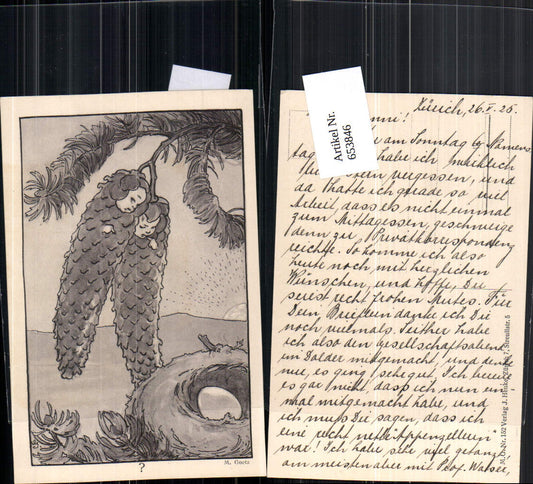 ?
M. Goetz
Artikel Nr.
653846
Zürich, 26.V.25.
!
am Sonntag Namens-
tag habe ich
vergessen, und
da hatte ich grade so viel
Arbeit, dass es nicht einmal
zum Mittagessen, geschweige
denn zu Privatkorrespondenz
reichte. So komme ich also
heute noch mit herzlichen
Wünschen, und hoffe, Du
seiest recht frohen Mutes. Für
Dein Brieflein danke ich Dir
noch vielmals. Seither habe
ich also den Gesellschaftsabend
im Dolder mitgemacht, und denke
nur, es ging sehr gut. Ich bereue
es gar nicht, dass ich nun ein-
mal mitgemacht habe, und
ich muss Dir sagen, dass ich
eine recht nette Appenzellerin
war! Ich habe sehr viel getanzt
am meisten aber mit Prof. Walser,
Nr. 132 Verlag J. 7, Streulistr. 5